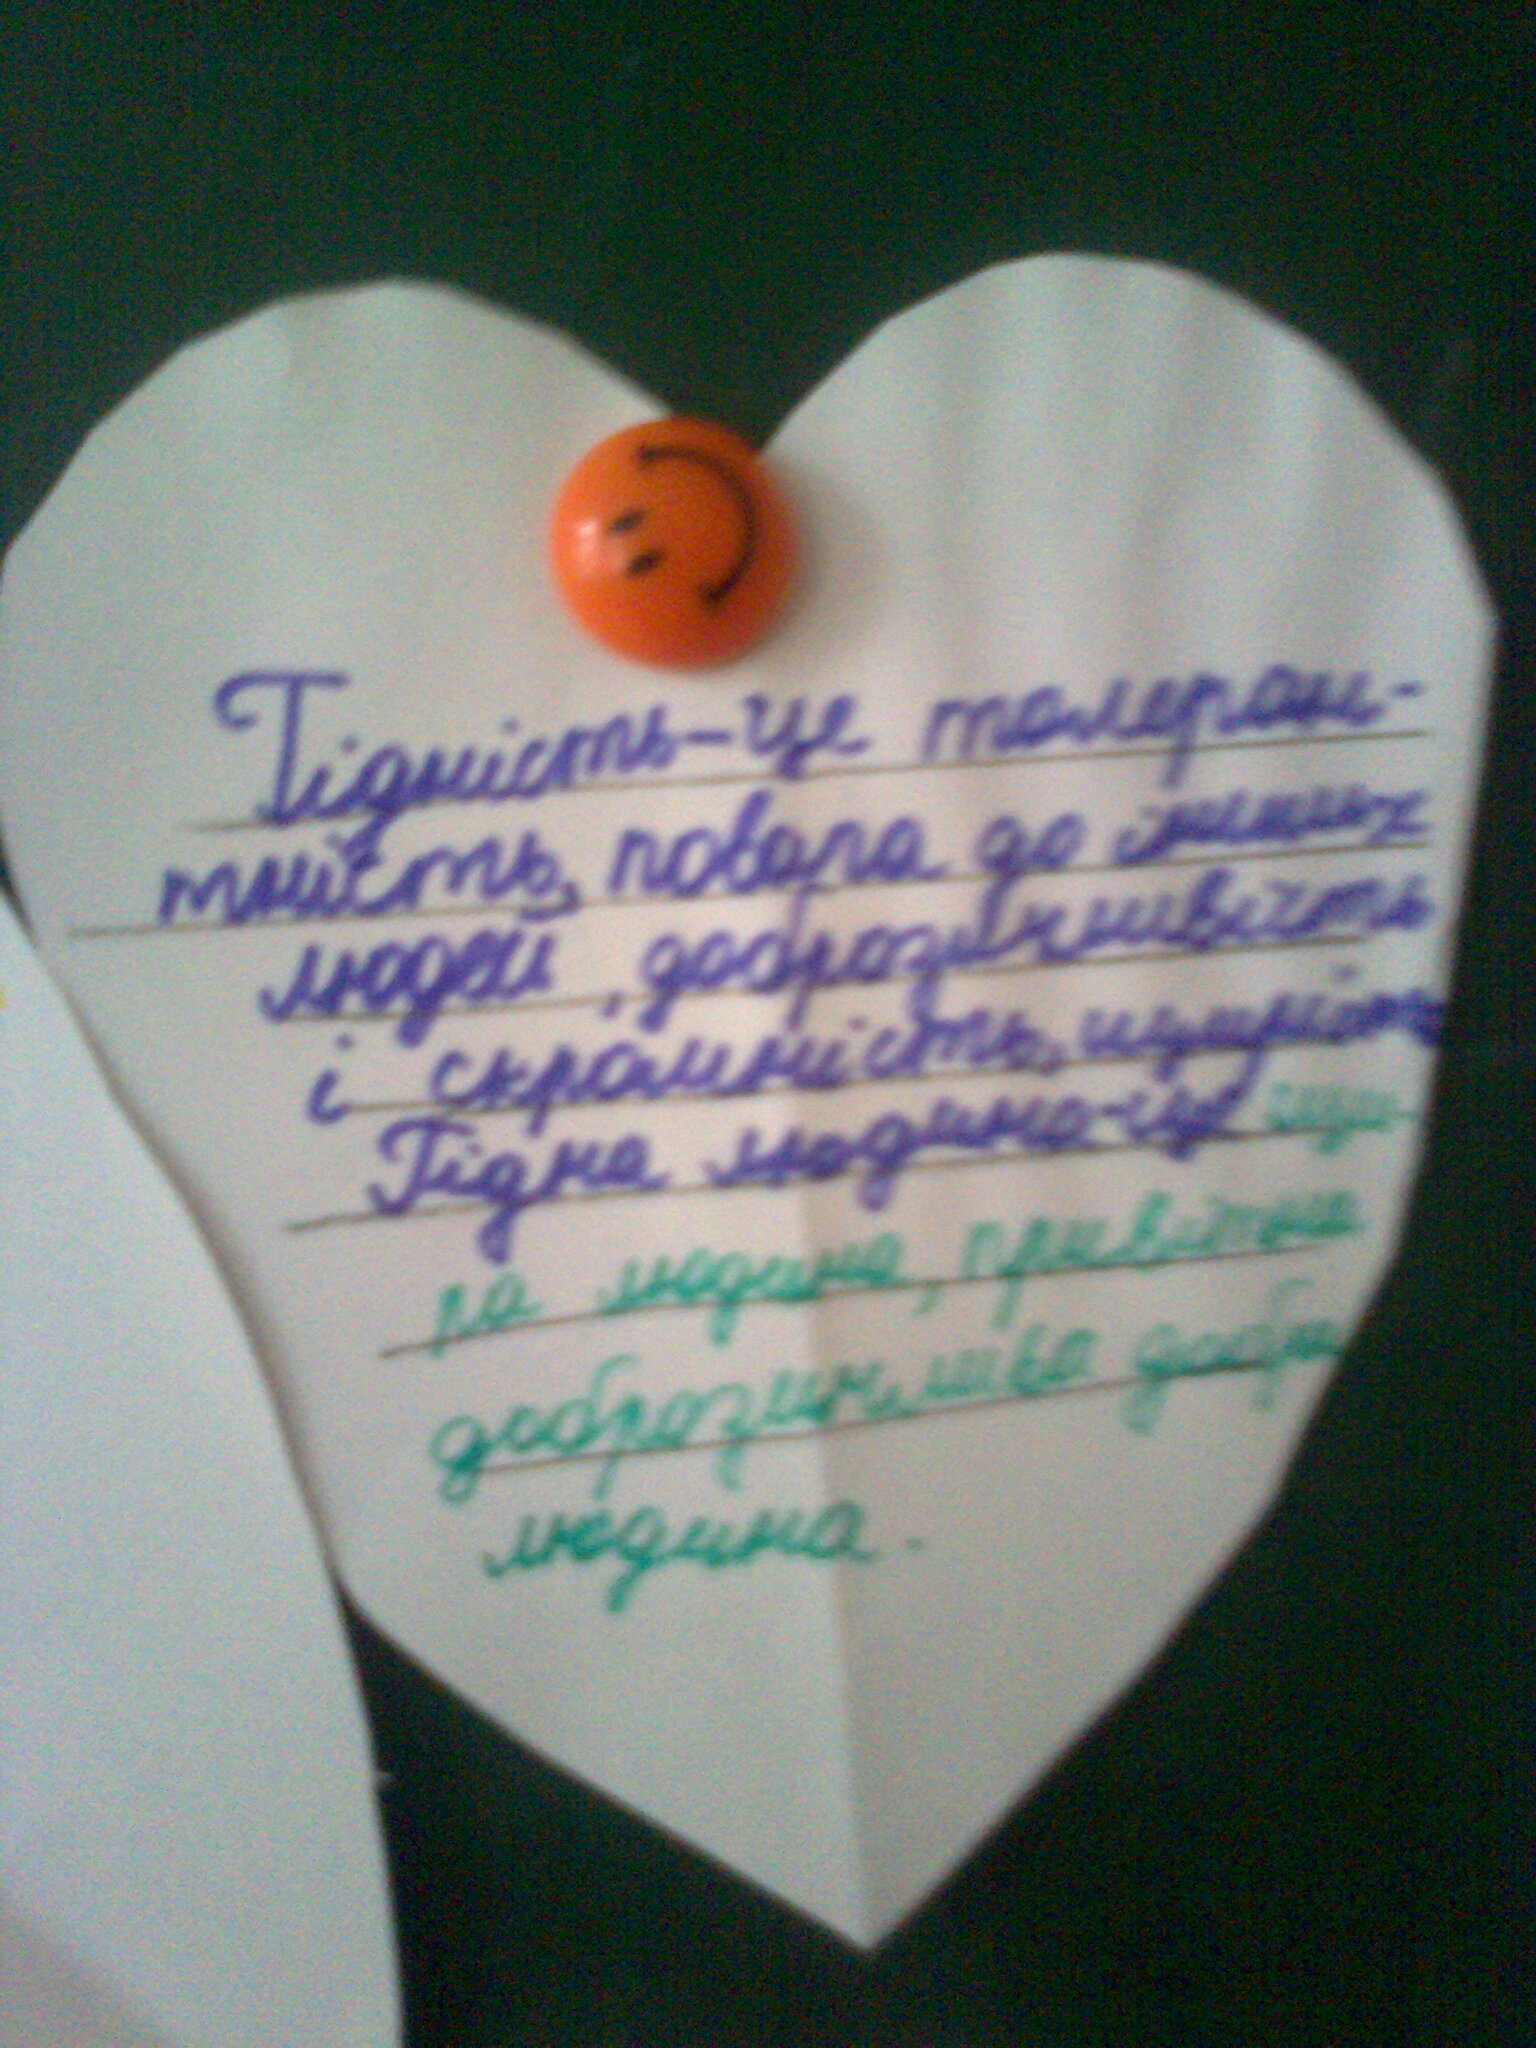 Гідність-це толеран-
тність, повага до інших
людей, доброзичливість
і скромність, щирість
Гідна людина-це щи-
ра людина, привітна
доброзичлива добра
людина.